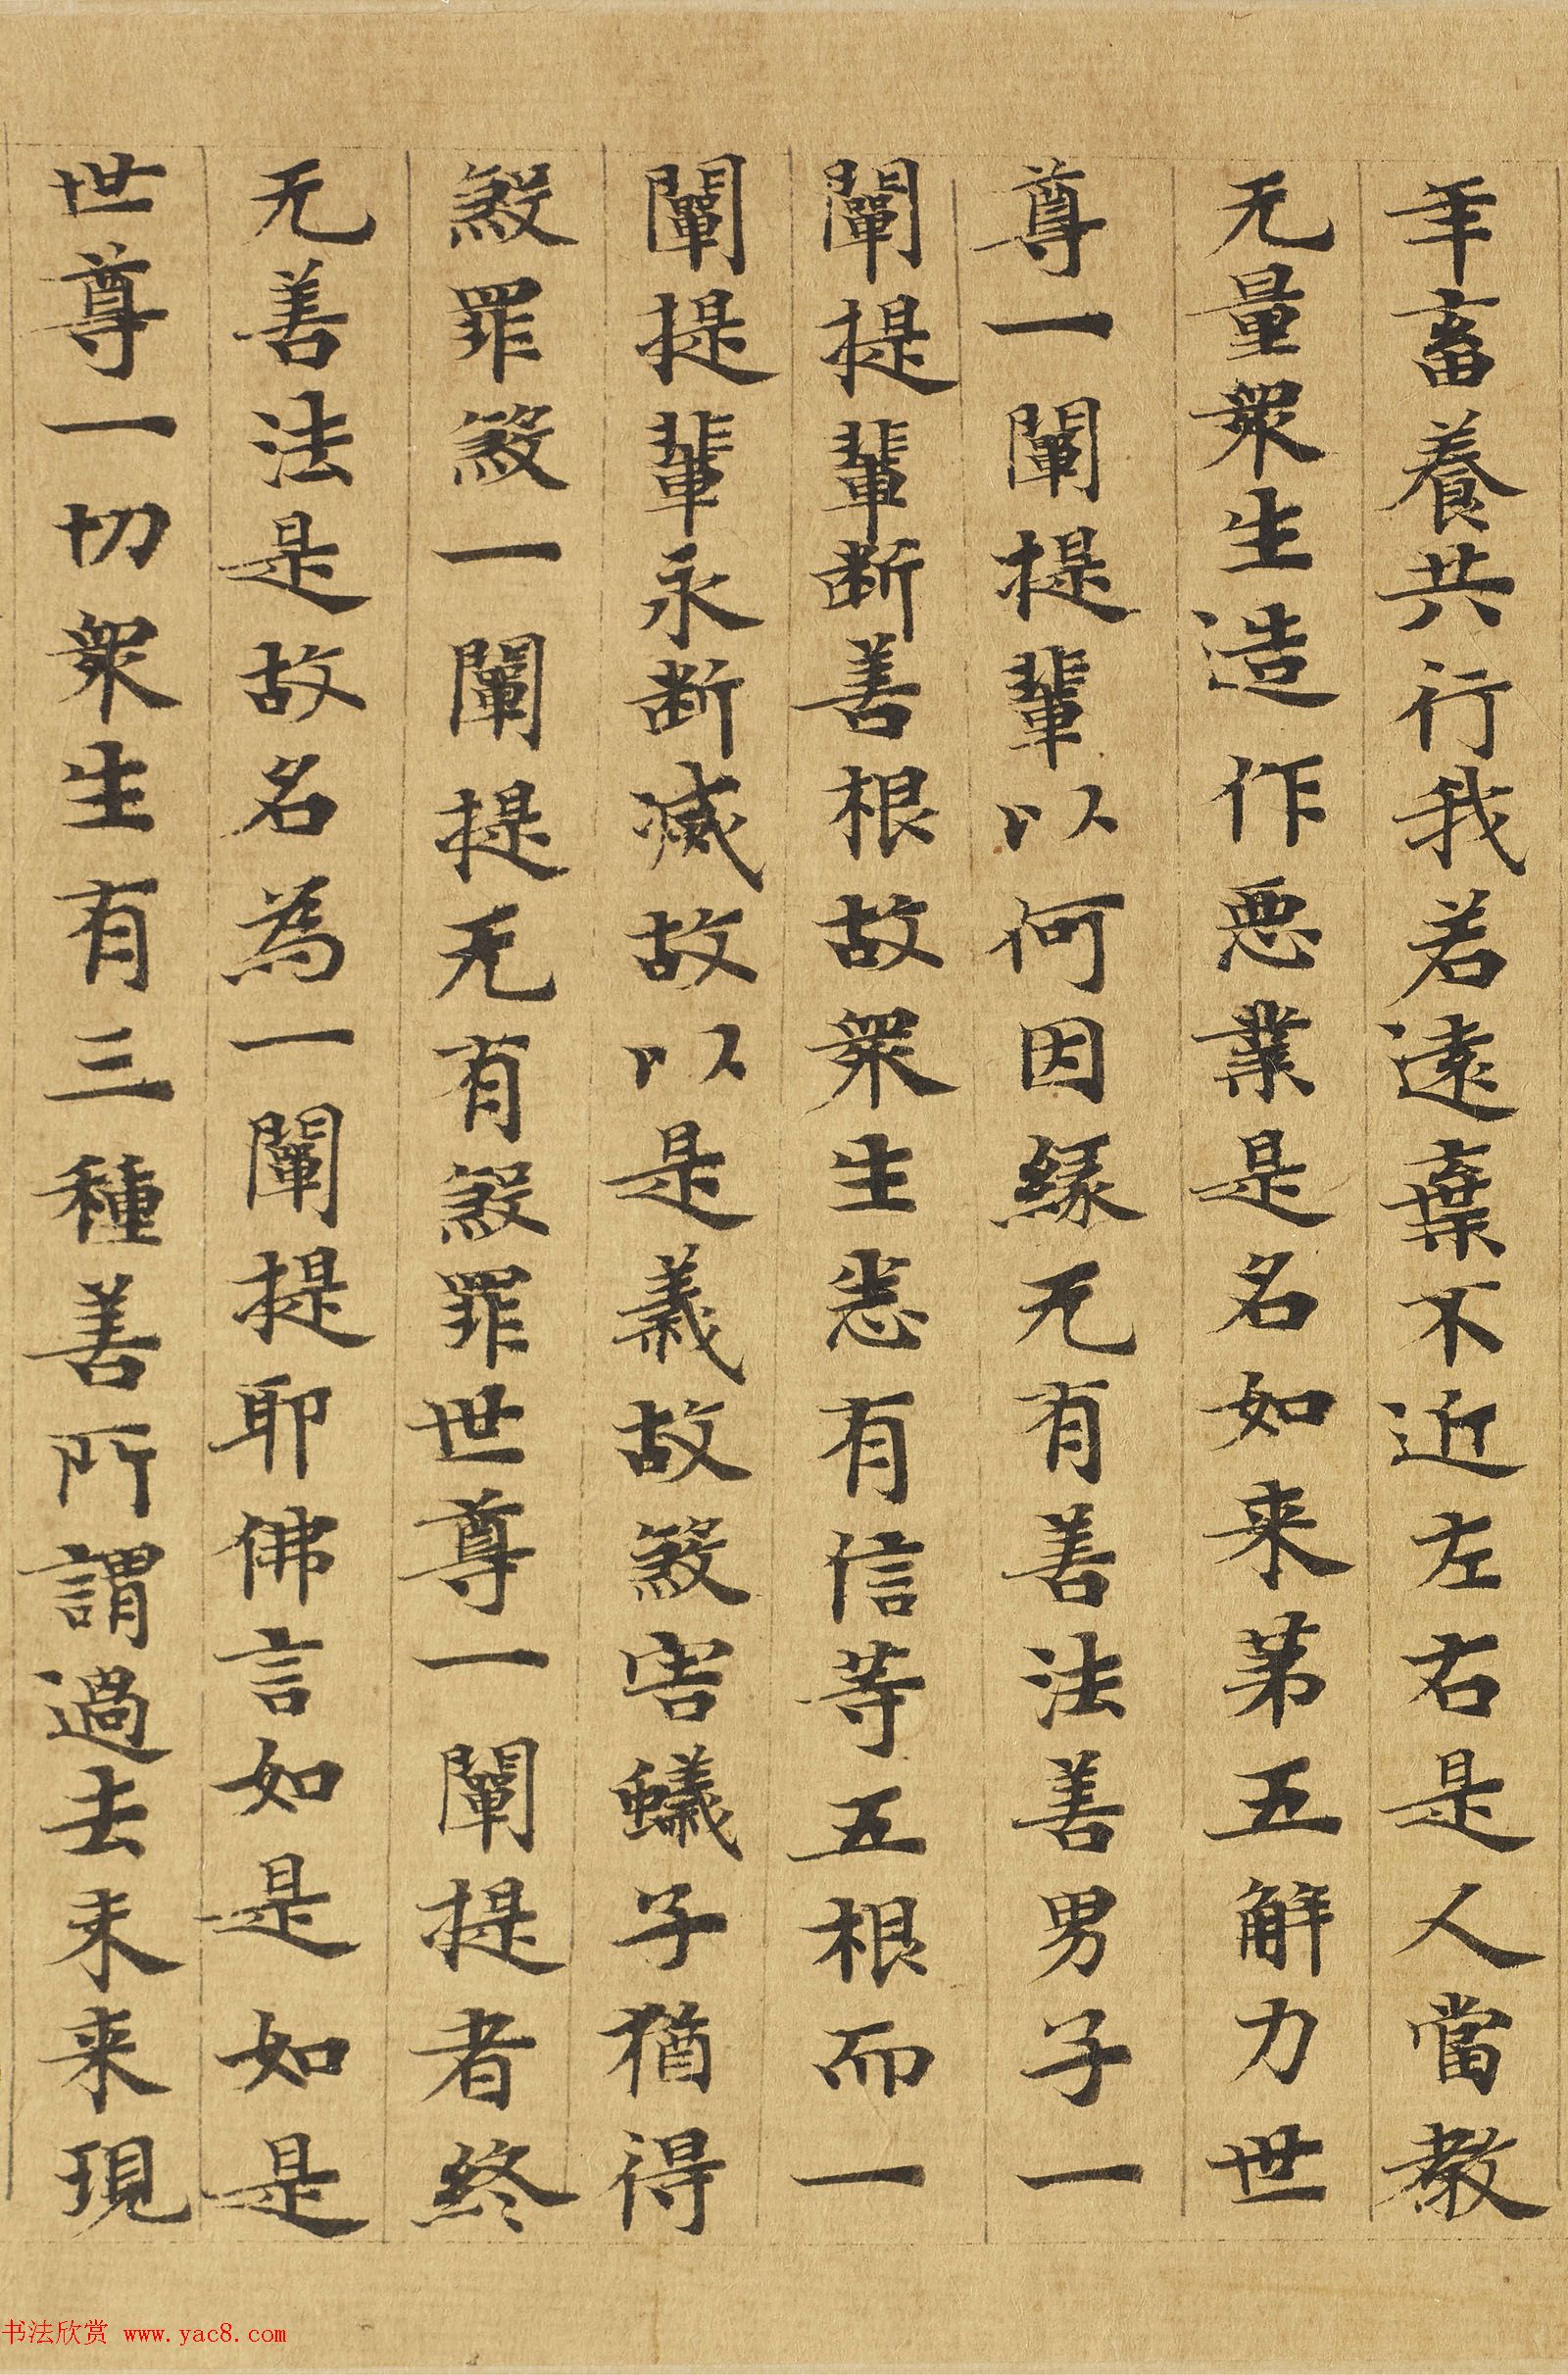 年畜養共行我若遠棄不近左右是人當教
无量眾生造作惡業是名如来第五解力世
尊一闡提輩以何因緣无有善法善男子一
闡提輩断善根故眾生悉有信等五根而一
闡提輩永断滅故以是義故煞害蟻子猶得
煞罪煞一闡提无有煞罪世尊一闡提者終
无善法是故名為一闡提耶佛言如是如是
世尊一切眾生有三種善所謂過去未来現
书法欣赏 www.yac8.com